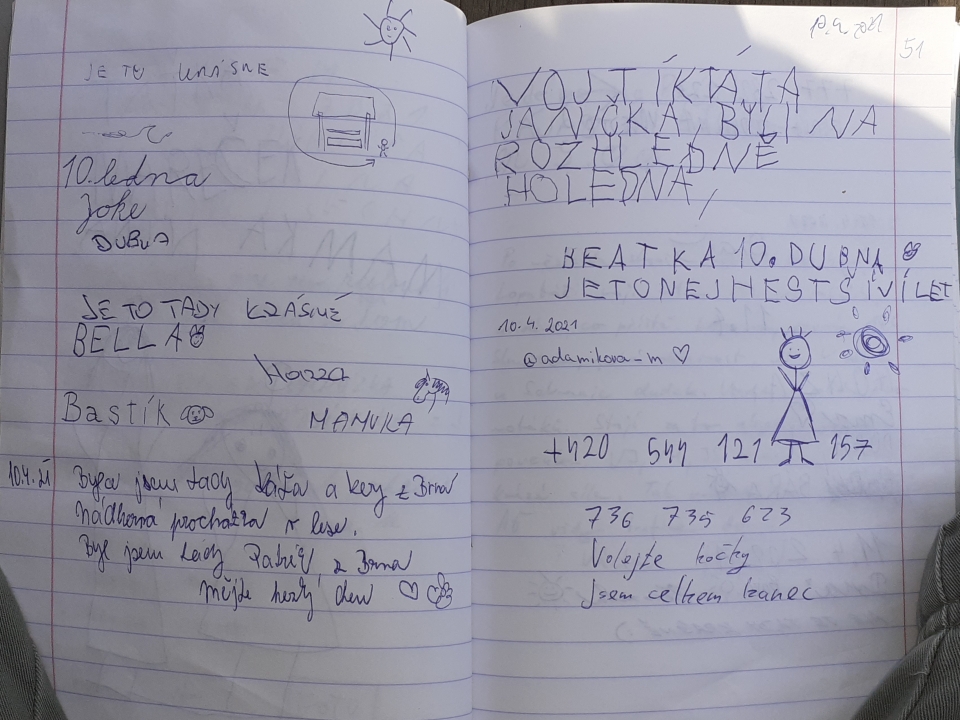 JE TO KRÁSNE
10. ledna
Joke
DUBNA
JE TO TADY KRÁSNÉ
BELLA
Honza
Bastík
MAMVKA
10.4.21 Byla jsem tady Káťa a kery z Brna
Nádherná procházka v lese.
Byl jsem tady z Brna
Mějte hezký den
10.4.2021
51
VOJTÍK TÁTA
JANIČKA, BYLI NA
ROZHLEDNĚ
HOLEDNÁ,
BEATKA 10. DUBNA
JE TO NEJHESTŠÍ VÍLET
10.4.2021
@adamikova_m ♡
+420 544 121 157
736 735 623
Volejte kočky
Jsem celkem kanec